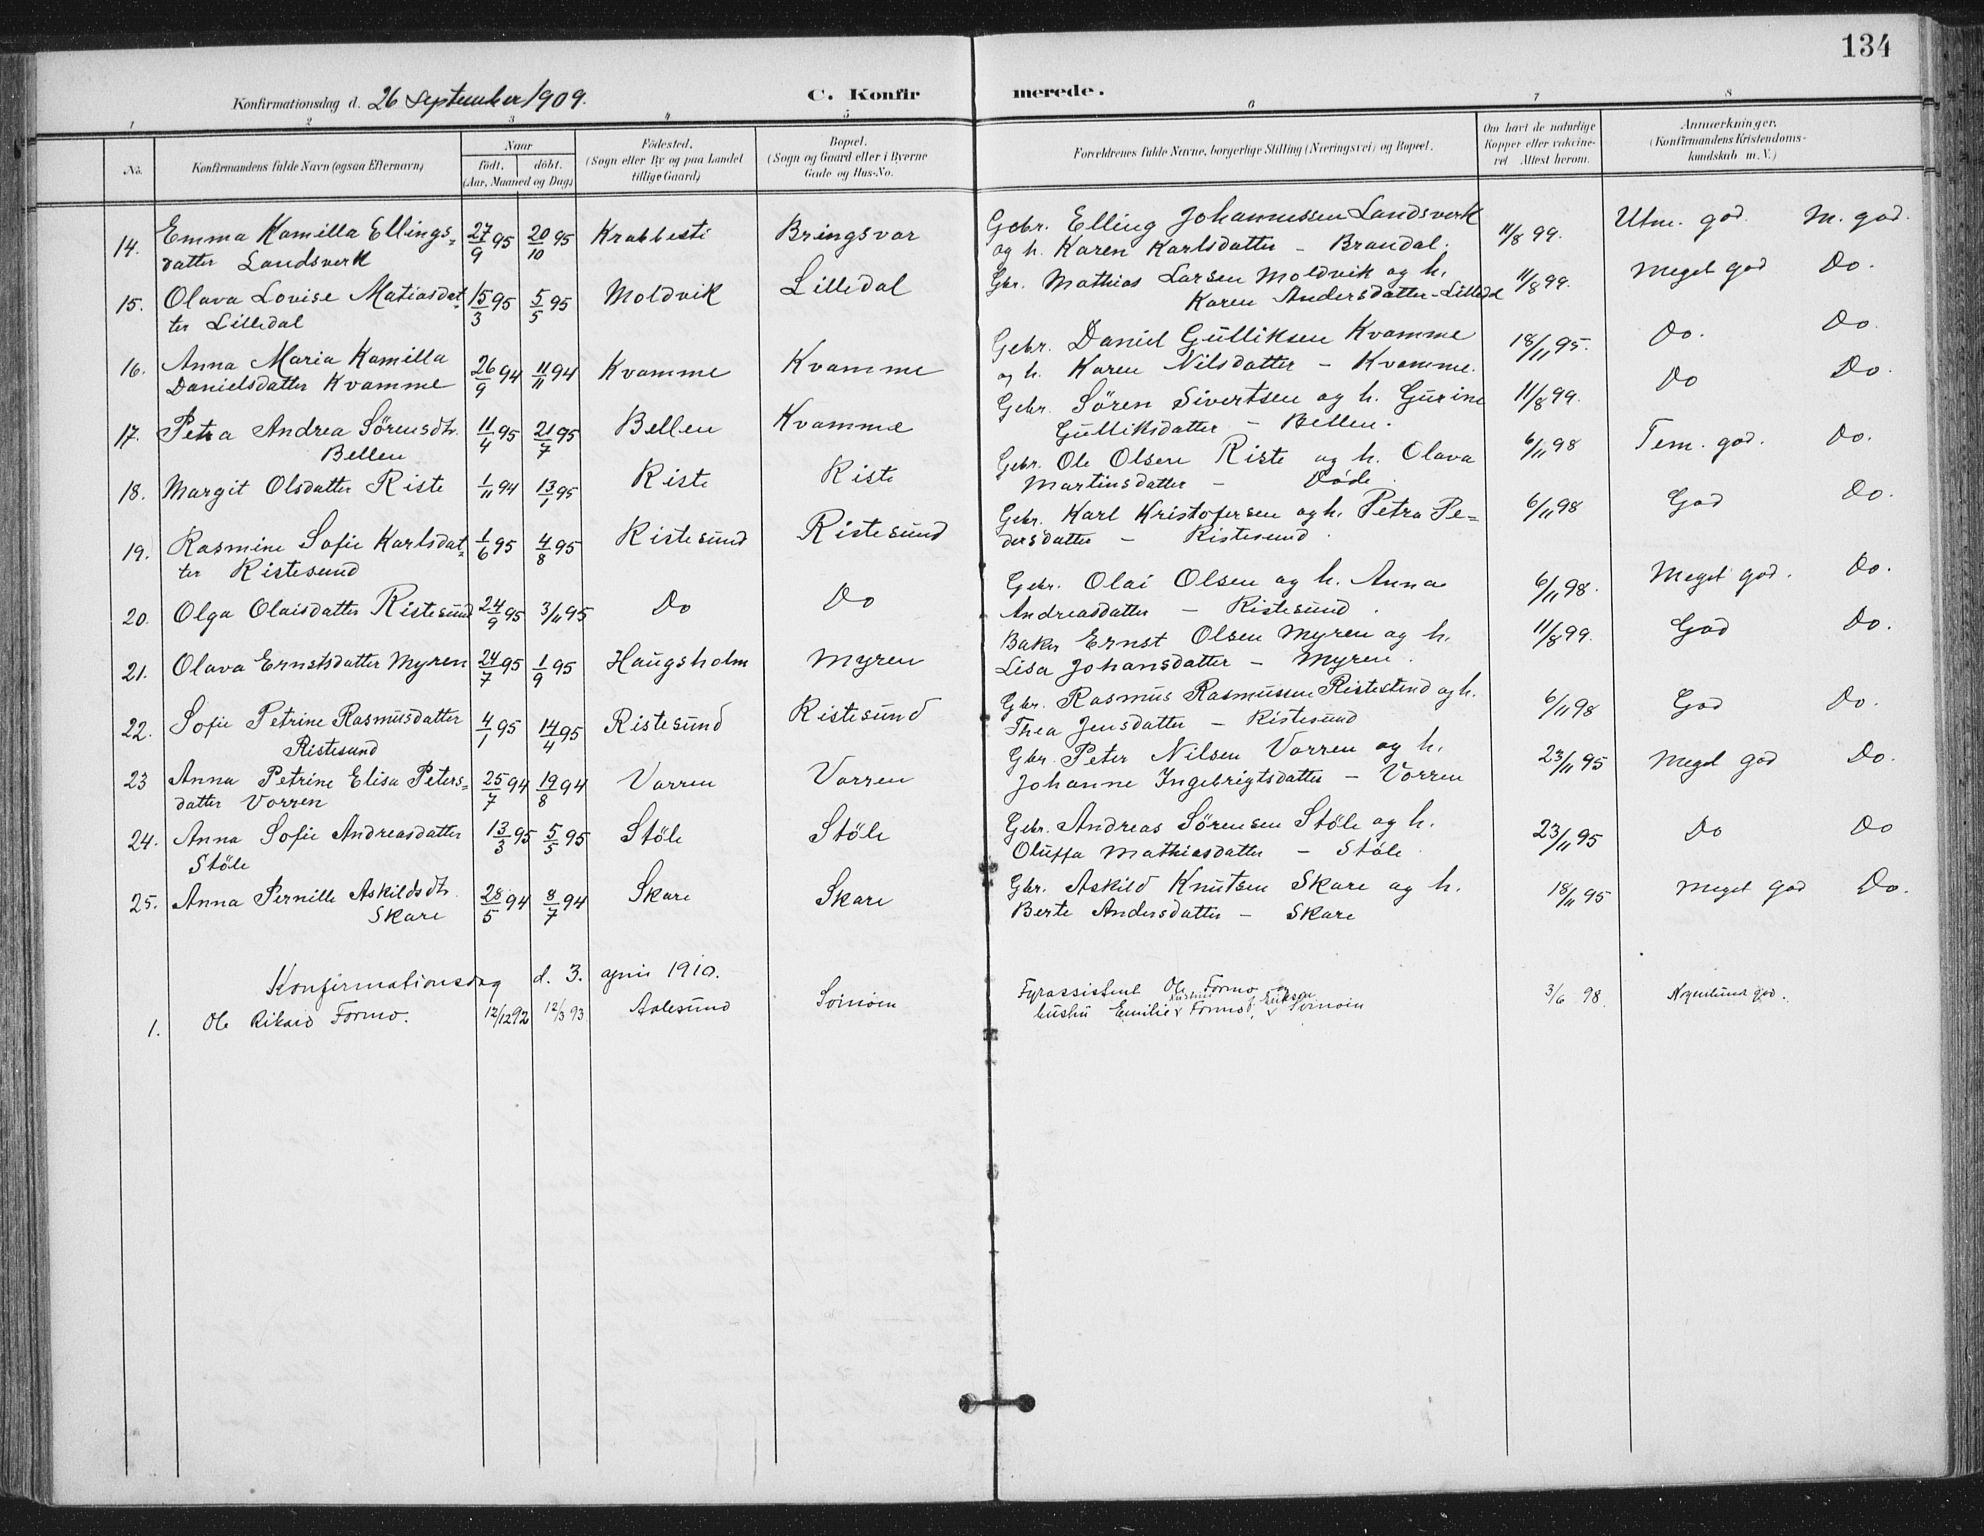 134
Konfirmationsdag d. 26 September 1909.
C. Konfirmerede.
1 2 3 4 5 6 7 8
No.
Konfirmandens fulde Navn (ogsaa Efternavn)
Naar
født. døbt.
(Aar, Maaned og Dag)
Fødested.
(Sogn eller By og paa Landet
tillige Gaard)
Bopæl.
(Sogn og Gaard eller i Byerne
Gade og Hus-No.
Forældrenes fulde Navne, borgerlige Stilling (Næringsvei) og Bopæl.
Om havt de naturlige
Kopper eller vakcine-
ret Attest herom.
Anmærkninger.
(Konfirmandens Kristendoms-
kundskab m. V.)
14. Emma Kamilla Ellings- 27/9 95 20/10 95 Krabbesti Bringsvor Gebr. Elling Johannessen Landsverk 11/8 99. Utm. god. M. god.
datter Landsverk og h. Karen Karlsdatter - Brandal.
15. Olava Lovise Matiasdat- 15/3 95 5/5 95 Moldvik Lilledal Gbr. Mathias Larsen Moldvik og h. 11/8 99. Meget god Do.
ter Lilledal Karen Andersdatter - Lilledal
16. Anna Maria Kamilla 26/9 94 11/11 94 Kvamme Kvamme Gebr. Daniel Gulliksen Kvamme 18/11 95. Do. Do.
Danielsdatter Kvamme og h. Karen Nilsdatter - Kvamme.
17. Petra Andrea Sørensdtr. 11/4 95 21/7 95 Bellen Kvamme Gebr. Søren Sivertsen og h. Gurine 11/8 99. Do Do.
Bellen Gulliksdatter - Bellen.
18. Margit Olsdatter Riste 1/11 94 13/1 95 Riste Riste Gebr. Ole Olsen Riste og h. Olava 6/11 98 Tem. god. Do.
Martinsdatter - Døde.
19. Rasmine Sofie Karlsdat- 1/6 95 4/8 95 Ristesund Ristesund Gebr. Karl Kristofersen og h. Petra Pe- 6/11 98 God Do.
ter Ristesund dersdatter - Ristesund.
20. Olga Olaisdatter Ristesund 24/9 95 3/11 95 Do Do Gebr. Olai Olsen og h. Anna 6/11 98. Meget god. Do.
Andreasdatter - Ristesund.
21. Olava Ernstsdatter Myren 24/7 95 1/9 95 Haugsholm Myren Baker Ernst Olsen Myren og h. 11/8 99. God Do.
Lisa Johansdatter - Myren.
22. Sofie Petrine Rasmusdatter 4/1 95 14/4 95 Ristesund Ristesund Gbr. Rasmus Rasmussen Ristesund og h. 6/11 98 God Do.
Ristesund Thea Jensdatter - Ristesund
23 Anna Petrine Elisa Peters- 25/7 94 19/8 94 Vorren Vorren Gbr. Peter Nilsen Vorren og h. 23/11 95 Meget god Do.
datter Vorren Johanne Ingebrigtsdatter - Vorren
24. Anna Sofie Andreasdatter 13/3 95 5/5 95 Støle Støle Gebr. Andreas Sørensen Støle og h. 23/11 95 Do Do
Støle Oluffa Mathiasdatter - Støle
25. Anna Pernille Askildsdtr. 28/5 94 8/7 94 Skare Skare Gbr. Askild Knutsen Skare og h. 18/11 95 Meget god Do.
Skare Berte Andersdatter - Skare
Konfirmationsdag d. 3. april 1910.
1. Ole Rikard Formo. 12/12 92 12/3 93 Aalesund Fyrassistent Ole Formo og 3/6 98.
hustru Emilie Formo f. Eriksen